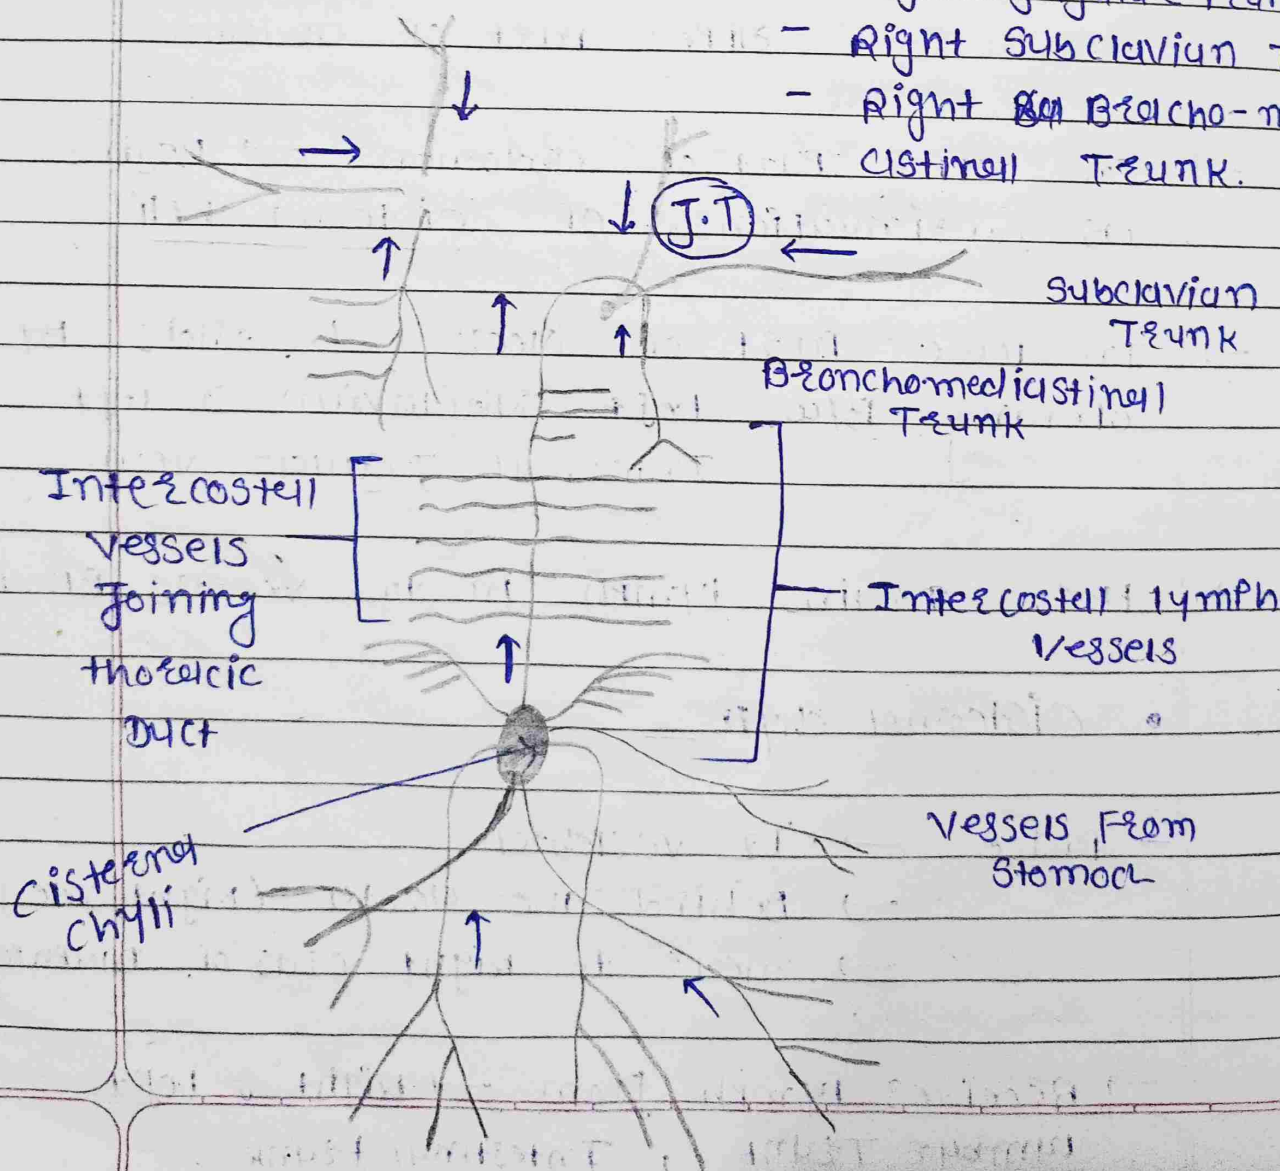 - Right Subclavian -
- Right Bracho-m
astinall Trunk.
J.T
Subclavian
Trunk
Bronchomediastinall
Trunk
Intercostall
Vessels
Joining
thoracic
Duct
Intercostall lymph
Vessels
Vessels From
Stomach
Cisterna
Chylli